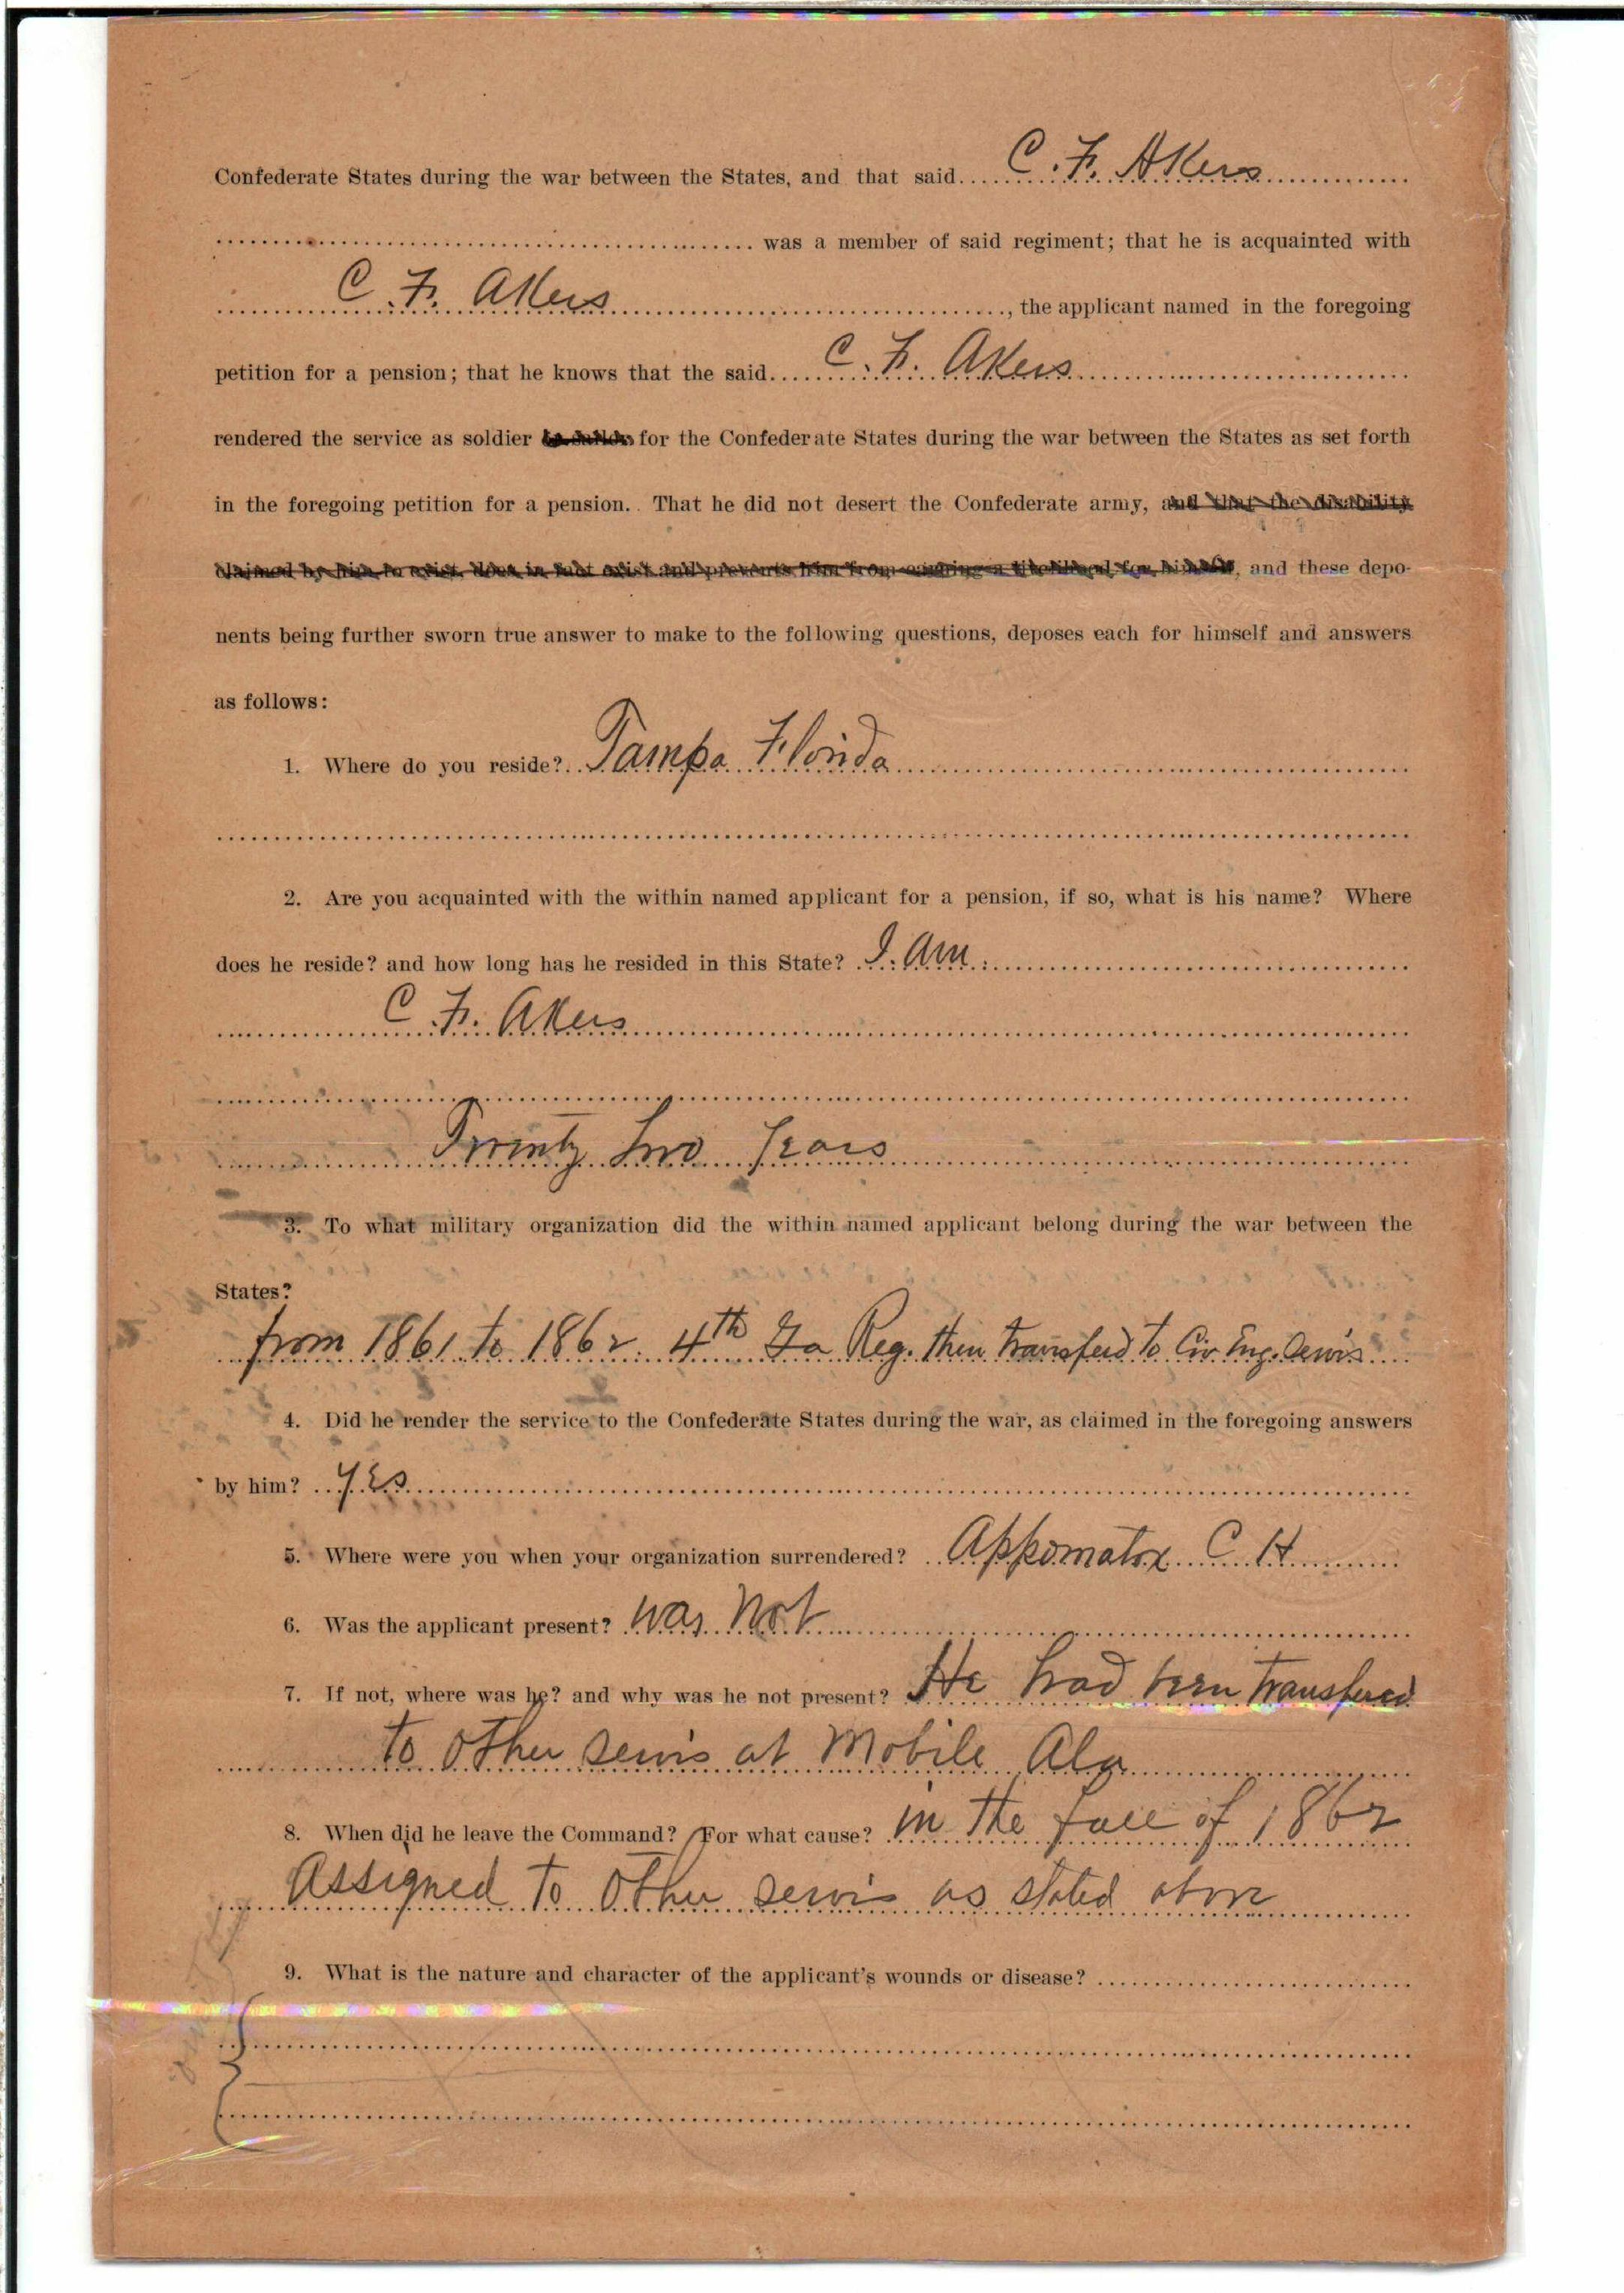 Confederate States during the war between the States, and that said C. F. Akers
was a member of said regiment; that he is acquainted with
C. F. Akers, the applicant named in the foregoing
petition for a pension; that he knows that the said C. F. Akers
rendered the service as soldier for the Confederate States during the war between the States as set forth
in the foregoing petition for a pension. That he did not desert the Confederate army, and that the disability
claimed by him to exist, does in fact exist and prevents him from earning a livelihood for himself, and these depo-
nents being further sworn true answer to make to the following questions, deposes each for himself and answers
as follows:
1. Where do you reside? Tampa Florida
2. Are you acquainted with the within named applicant for a pension, if so, what is his name? Where
does he reside? and how long has he resided in this State? I. am.
C. F. Akers
Twenty Two Years
3. To what military organization did the within named applicant belong during the war between the
States?
from 1861 to 1862. 4th Ga Reg. then transferd to Civ. Eng. Servis
4. Did he render the service to the Confederate States during the war, as claimed in the foregoing answers
by him? Yes
5. Where were you when your organization surrendered? Appomatox C H
6. Was the applicant present? Was Not
7. If not, where was he? and why was he not present? He had been transfered
to other servis at Mobile Ala
8. When did he leave the Command? For what cause? in the fall of 1862
Assigned to other servis as stated above
9. What is the nature and character of the applicant's wounds or disease?